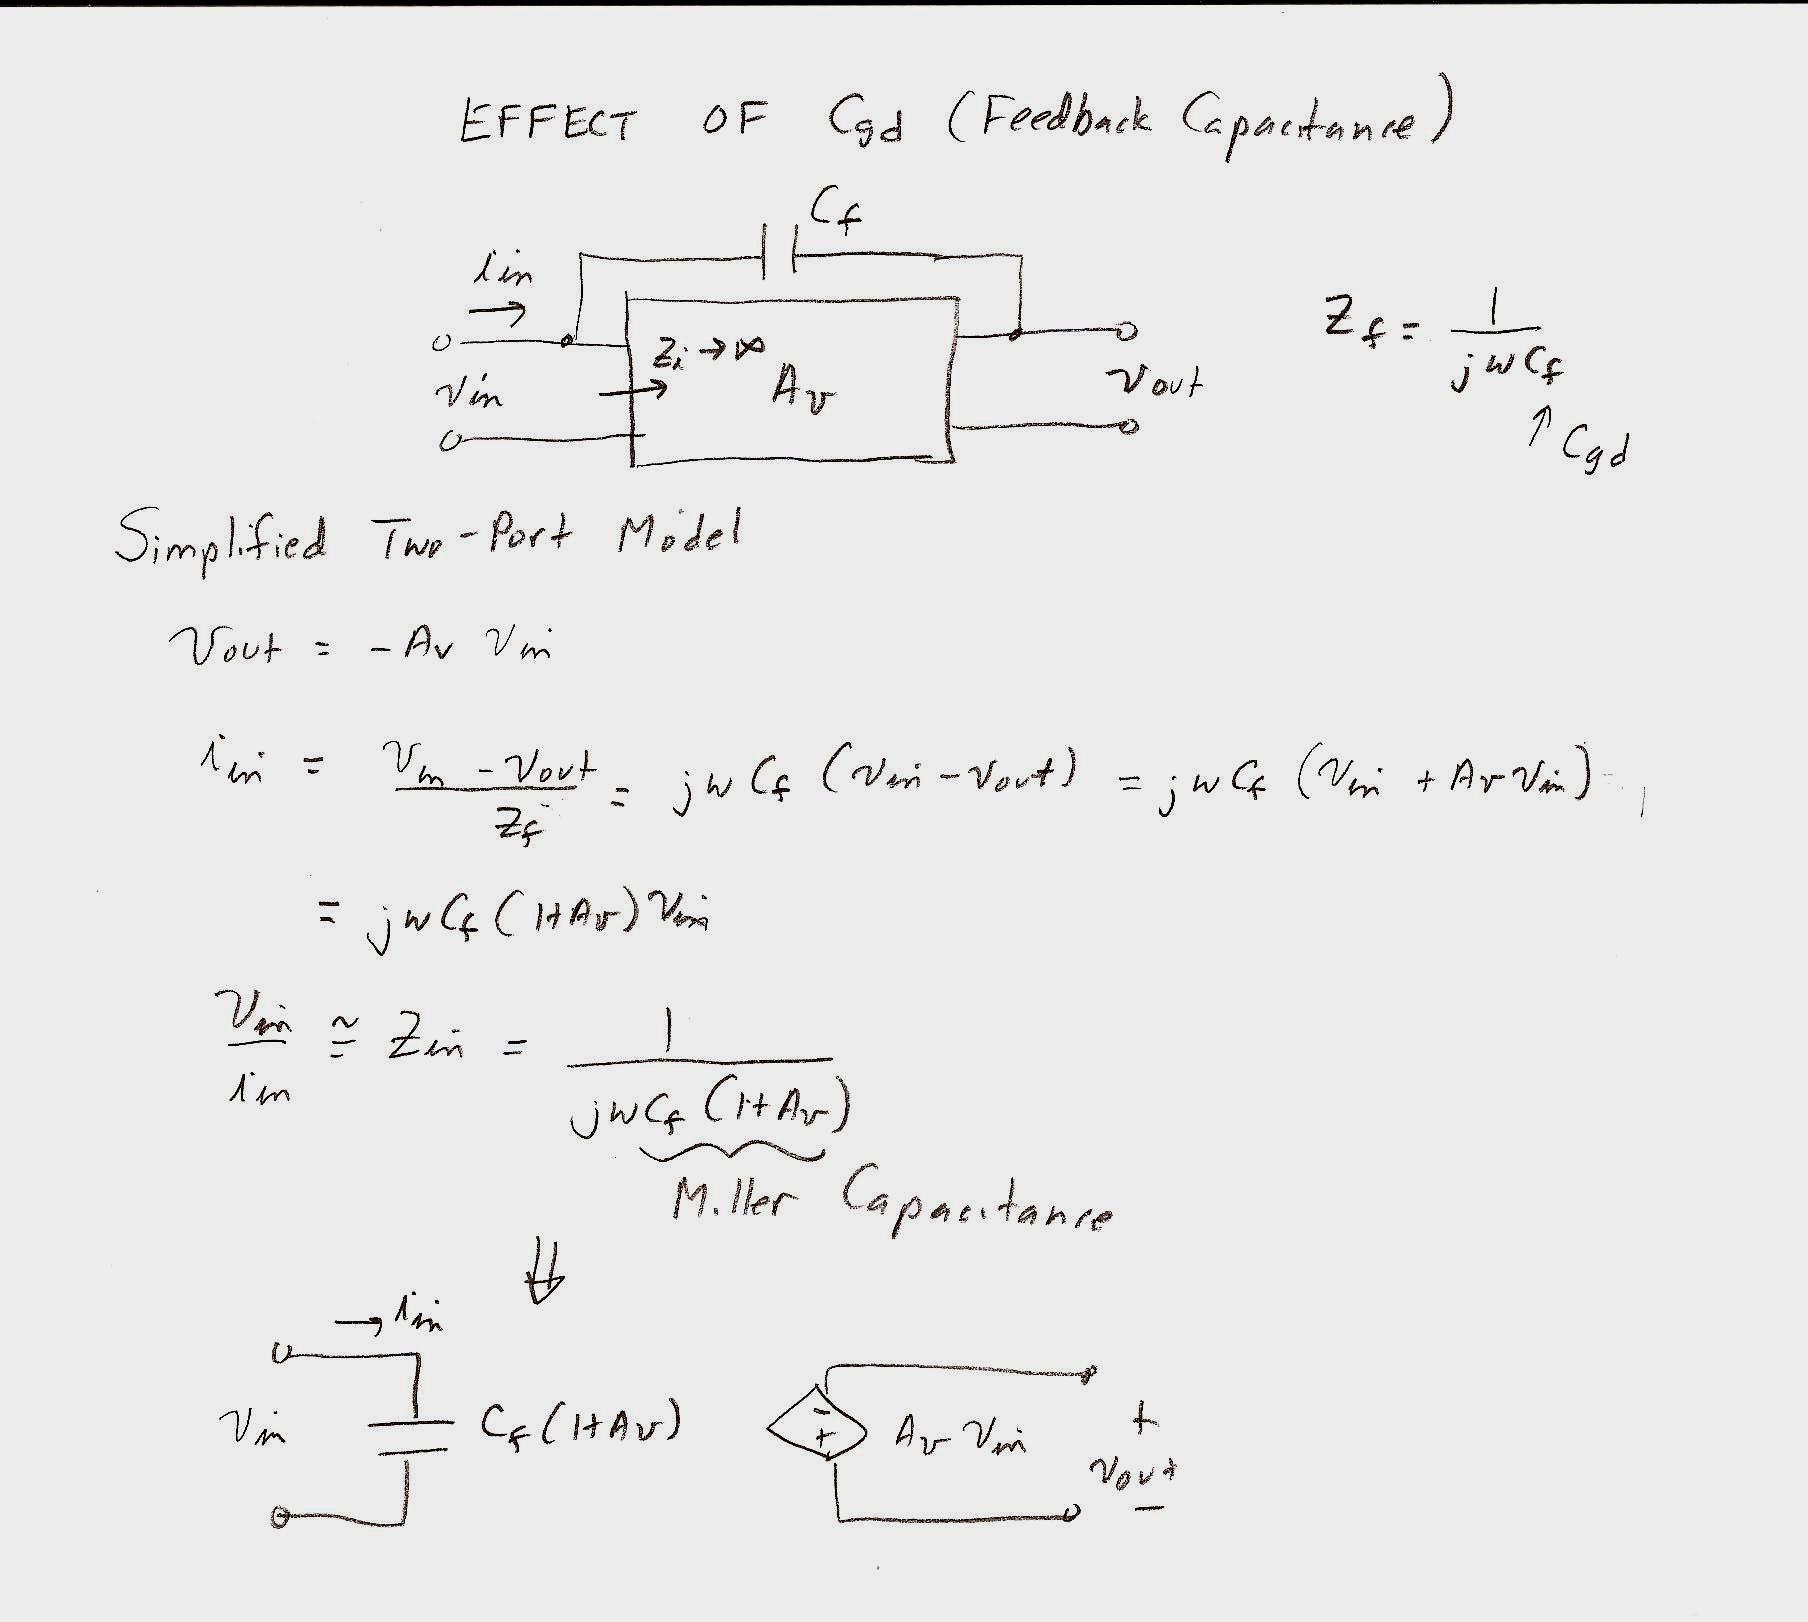 EFFECT OF Cgd (Feedback Capacitance)
Cf
iin
Zi → ∞
Vin
Av
Vout
Zf = 1 / jwCf
↑ Cgd
Simplified Two-Port Model
Vout = -Av Vin
iin = Vin - Vout / Zf = jwCf (Vin - Vout) = jwCf (Vin + Av Vin)
= jwCf (1+Av) Vin
Vin / iin ≅ Zin = 1 / jwCf (1+Av)
Miller Capacitance
⇓
→ iin
Vin
Cf (1+Av)
- +
Av Vin
+ Vout -